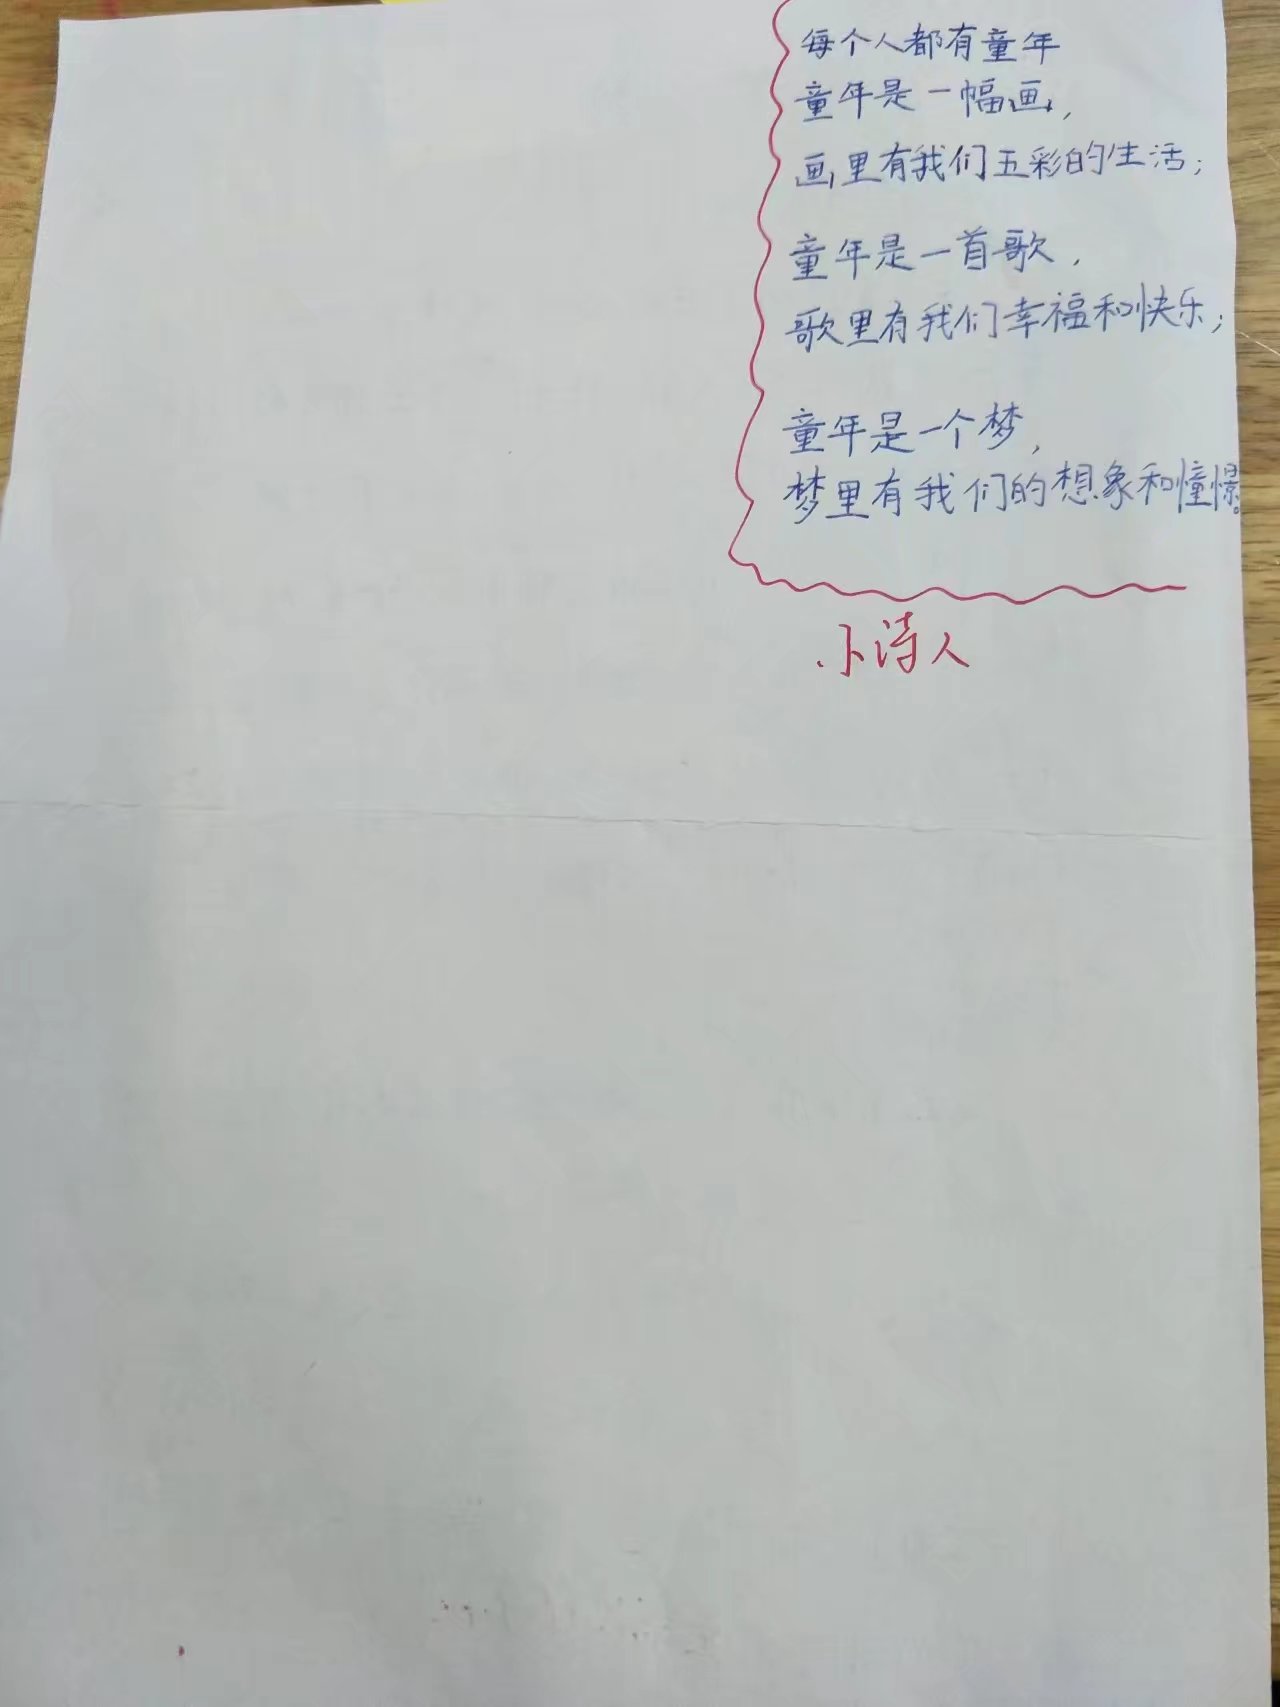 每个人都有童年
童年是一幅画,
画里有我们五彩的生活;
童年是一首歌,
歌里有我们幸福和快乐;
童年是一个梦,
梦里有我们的想象和憧憬。
小诗人